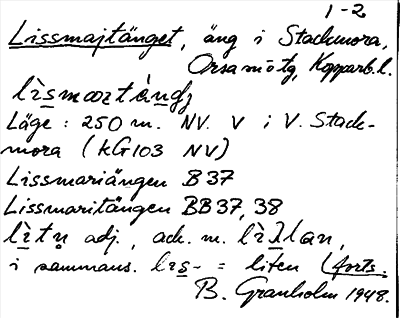 1-2
Lissmajtänget, äng i Stackmora,
Orsa sn o tg, Kopparb. l.
Läge: 250 m. NV. V i V. Stack-
mora (KG103 NV)
Lissmariängen B37
Lissmaritängen BB37, 38
adj., ack. m.
i sammans. = liten (forts.
B. Granholm 1948.